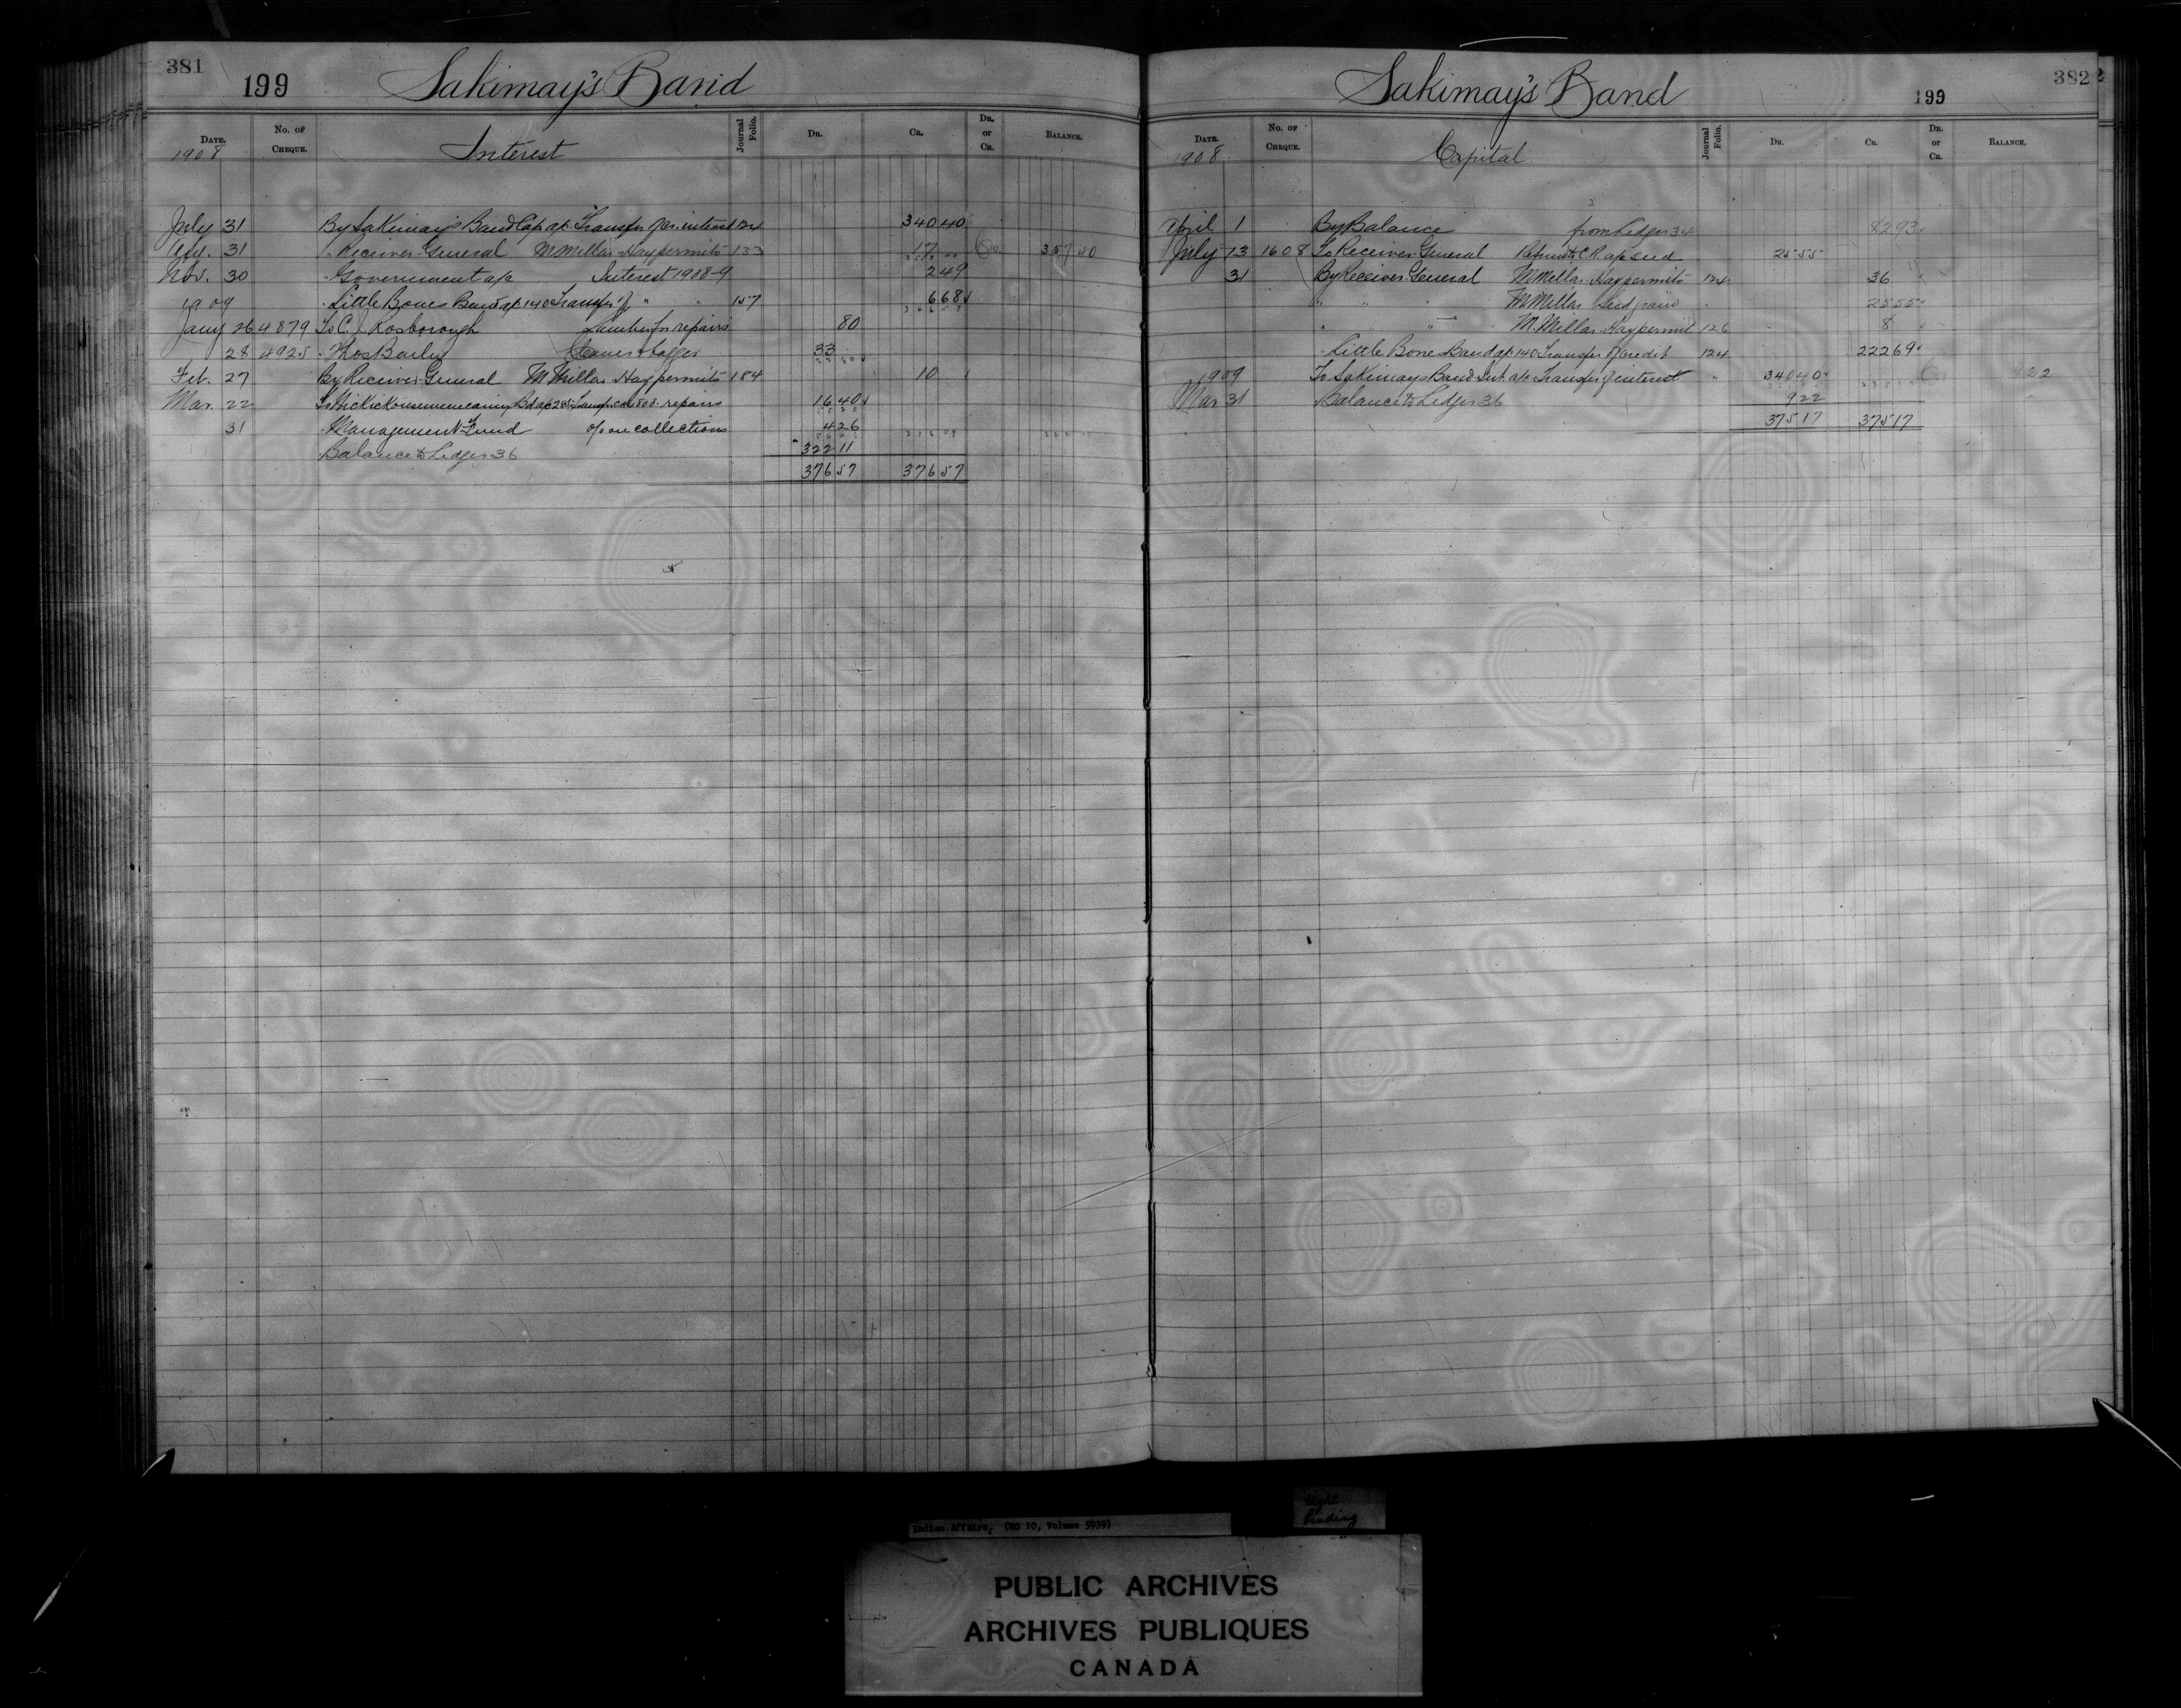 381
199 Sakimay's Band
DATE. No. OF CHEQUE. Interest Journal Folio. DR. CR. DR. or CR. BALANCE.
1908
July 31 By Sakimay's Band Cap a/c Transfer of Cr. interest 124 340 40
Aug. 31 " Receiver General M. Millar Hay permits 133 17 Cr. 357 40
Nov. 30 " Government a/c Interest 1908-9 2 49
1909 " Little Bones Band a/c 140 Transfer of " " 157 6 68
Jany 26 4879 To C. J. Rosborough Lumber for repairs 80
28 4925 " Thos Barley 33
Feb. 27 By Receiver General M Millar Hay permits 184 10
Mar. 22 16 40
31 " Management Fund % on collections 4 26
Balance to Ledger 36 322 11
376 57 376 57
382
Sakimay's Band 199
DATE. No. OF CHEQUE. Capital Journal Folio. DR. CR. DR. or CR. BALANCE.
1908
April 1 By Balance from Ledger 34 82 93
July 13 1608 To Receiver General Refund to C.R. a/c seed 25 55
31 By Receiver General M Millar Hay permits 124 36
" " " M Millar seed grain " 25 55
" " " M. Millar Hay permit 126 8
" Little Bone Band a/c 140 Transfer of credit 124 222 69
1909 To Sakimays Band Int a/c Transfer of interest " 340 40 Cr 9 22
Mar 31 Balance to Ledger 36 9 22
375 17 375 17
Indian Affairs, (RG 10, Volume 5939)
tight binding
PUBLIC ARCHIVES
ARCHIVES PUBLIQUES
CANADA